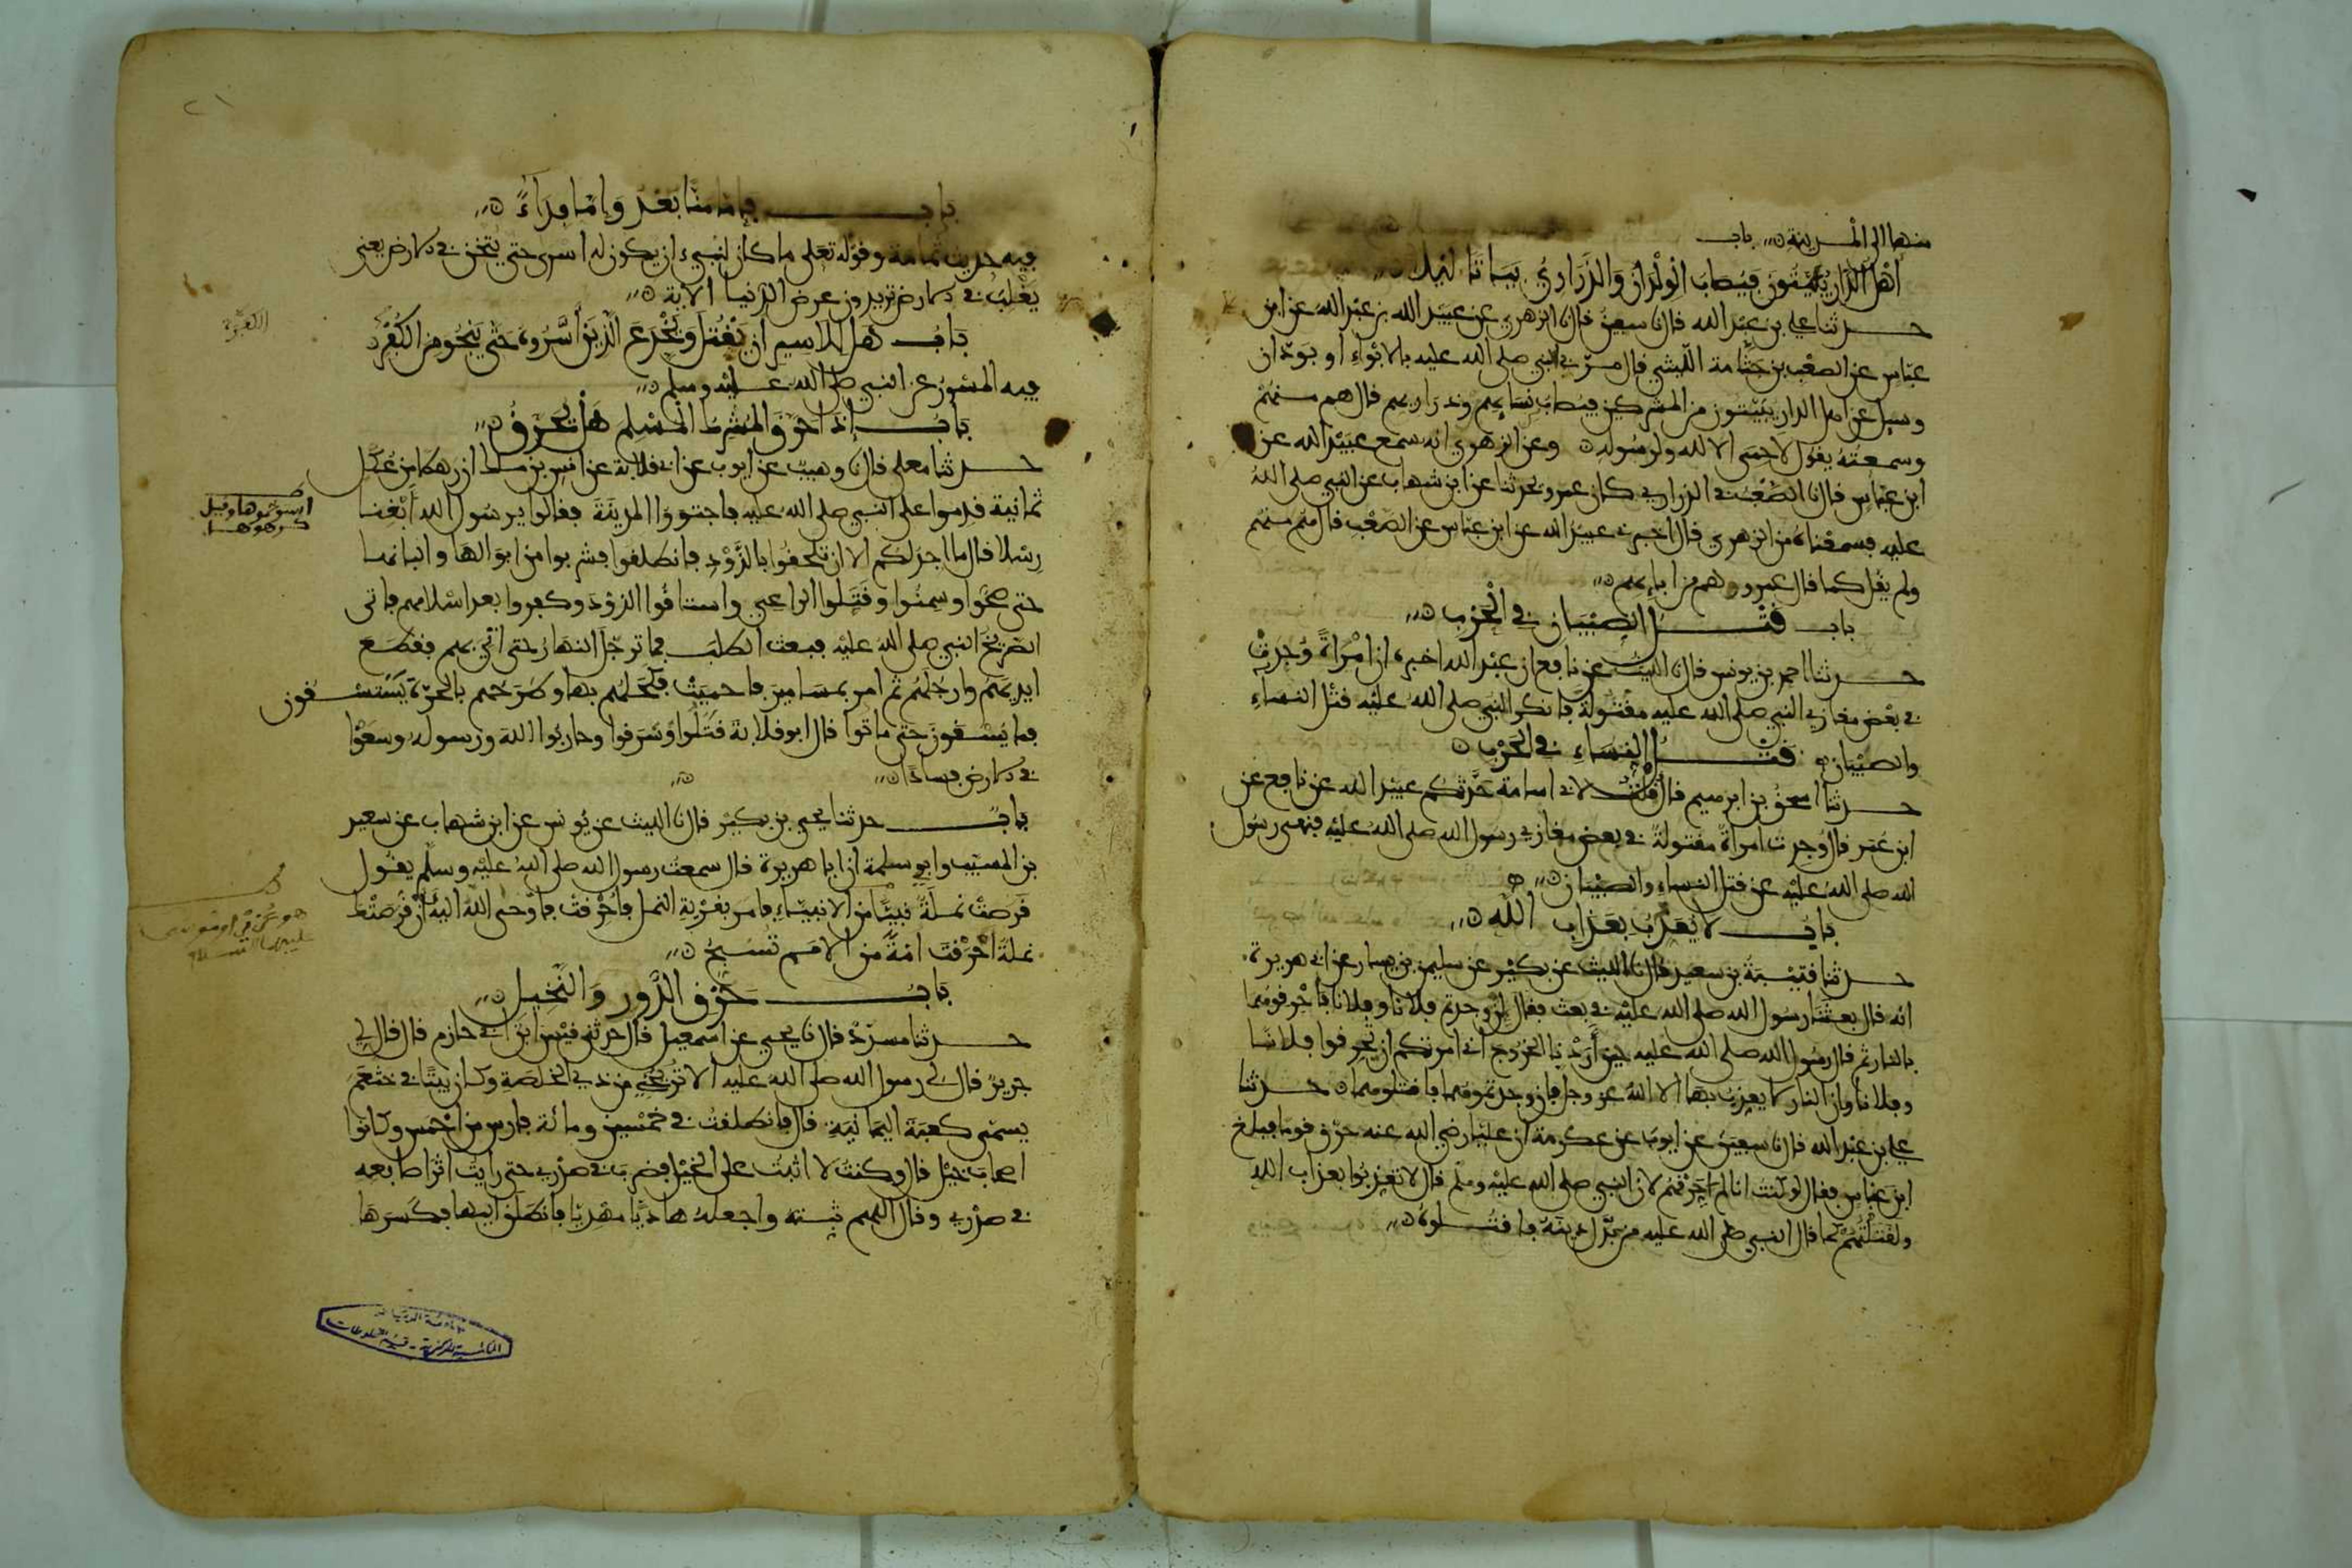 منها الى المدينة باب
اهل الدار يبيتون فيصاب الولدان والذراري بياتا ليلا
حدثنا علي بن عبد الله قال نا سفين قال نا الزهري عن عبيد الله بن عبد الله عن ابن
عباس عن الصعب بن جثامة الليثي قال مر بي النبي صلى الله عليه بالابواء او بودان
وسيل عن اهل الدار يبيتون من المشركين فيصاب نسايهم وذراريهم قال هم منهم
وسمعته يقول لا حمى الا لله ولرسوله وعن الزهري انه سمع عبيد الله عن
ابن عباس قال نا الصعب في الذراري كان عمرو يحدثنا عن ابن شهاب عن النبي صلى الله
عليه فسمعناه من الزهري قال اخبرني عبيد الله عن ابن عباس عن الصعب قال هم منهم
ولم يقل كما قال عمرو وهم من ابايهم
باب قتل الصبيان في الحرب
حدثنا احمد بن يونس قال نا الليث عن نافع ان عبد الله اخبره ان امراة وجدت
في بعض مغازي النبي صلى الله عليه مقتولة فانكر النبي صلى الله عليه قتل النساء
والصبيان قتل النساء في الحرب
حدثنا اسحق بن ابرهيم قال قلت لابي اسامة حدثكم عبيد الله عن نافع عن
ابن عمر قال وجدت امراة مقتولة في بعض مغازي رسول الله صلى الله عليه فنهى رسول
الله صلى الله عليه عن قتل النساء والصبيان
باب لا يعذب بعذاب الله
حدثنا قتيبة بن سعيد قال نا الليث عن بكير عن سليمن بن يسار عن ابي هريرة
انه قال بعثنا رسول الله صلى الله عليه في بعث فقال ان وجدتم فلانا وفلانا فاحرقوهما
بالنار ثم قال رسول الله صلى الله عليه حين اردنا الخروج اني امرتكم ان تحرقوا فلانا
وفلانا وان النار لا يعذب بها الا الله عز وجل فان وجدتموهما فاقتلوهما حدثنا
علي بن عبد الله قال نا سفين عن ايوب عن عكرمة ان عليا رضي الله عنه حرق قوما فبلغ
ابن عباس فقال لو كنت انا لم احرقهم لان النبي صلى الله عليه وسلم قال لا تعذبوا بعذاب الله
ولقتلتهم كما قال النبي صلى الله عليه من بدل دينه فاقتلوه
باب فاما منا بعد واما فداء
فيه حديث ثمامة وقوله تعلى ما كان لنبيء ان يكون له اسرى حتى يثخن في الارض يعني
يغلب في الارض تريدون عرض الدنيا الاية
باب هل للاسير ان يقتل ويخدع الذين اسروه حتى ينجو من الكفرة
فيه المسور عن النبي صلى الله عليه وسلم
باب اذا حرق المشرك المسلم هل يحرق
حدثنا معلى قال نا وهيب عن ايوب عن ابي قلابة عن انس بن ملك ان رهطا من عكل
ثمانية قدموا على النبي صلى الله عليه فاجتووا المدينة فقالوا يرسول الله ابغنا
رسلا قال ما اجد لكم الا ان تلحقوا بالذود فانطلقوا فشربوا من ابوالها والبانها
حتى صحوا وسمنوا وقتلوا الراعي واستاقوا الذود وكفروا بعد اسلامهم فاتى
الصريخ النبي صلى الله عليه فبعث الطلب فما ترجل النهار حتى اتي بهم فقطع
ايديهم وارجلهم ثم امر بمسامير فاحميت فكحلهم بها وطرحهم بالحرة يستسقون
فما يسقون حتى ماتوا قال ابو قلابة قتلوا وسرقوا وحاربوا الله ورسوله وسعوا
في الارض فسادا
باب حدثنا يحيى بن بكير قال نا الليث عن يونس عن ابن شهاب عن سعيد
بن المسيب وابي سلمة ان ابا هريرة قال سمعت رسول الله صلى الله عليه وسلم يقول
قرصت نملة نبيا من الانبياء فامر بقرية النمل فاحرقت فاوحى الله اليه ان قرصتك
نملة احرقت امة من الامم تسبح
باب حرق الدور والنخيل
حدثنا مسدد قال نا يحيى عن اسمعيل قال حدثني قيس بن ابي حازم قال قال لي
جرير قال لي رسول الله صلى الله عليه الا تريحني من ذي الخلصة وكان بيتا في خثعم
يسمى كعبة اليمانية قال فانطلقت في خمسين ومائة فارس من احمس وكانوا
اصحاب خيل قال وكنت لا اثبت على الخيل فضرب في صدري حتى رايت اثر اصابعه
في صدري وقال اللهم ثبته واجعله هاديا مهديا فانطلق اليها فكسرها
الكفرة
استوخموها وقيل
كرهوها
هو عزير او موسى
عليهما السلام
المكتبة المركزية - قسم المخطوطات